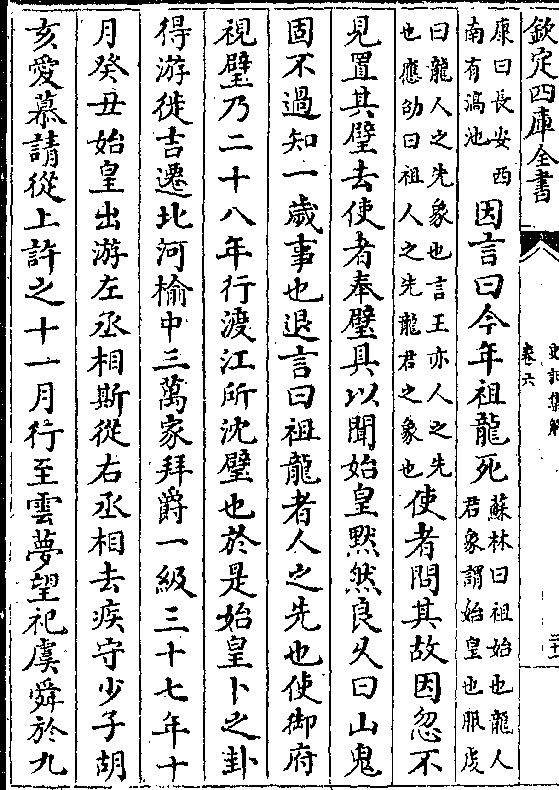 欽定四庫全書
史記集解
卷六
康曰長安西
南有滈池
因言曰今年祖龍死
蘇林曰祖始也龍人
君象謂始皇也服虔
曰龍人之先象也言王亦人之先
也應劭曰祖人之先龍君之象也
使者問其故因忽不
見置其璧去使者奉璧具以聞始皇默然良乆曰山鬼
固不過知一歲事也退言曰祖龍者人之先也使御府
視璧乃二十八年行渡江所沈璧也於是始皇卜之卦
得游徙吉遷北河榆中三萬家拜爵一級三十七年十
月癸丑始皇出游左丞相斯從右丞相去疾守少子胡
亥愛慕請從上許之十一月行至雲夢望祀虞舜於九